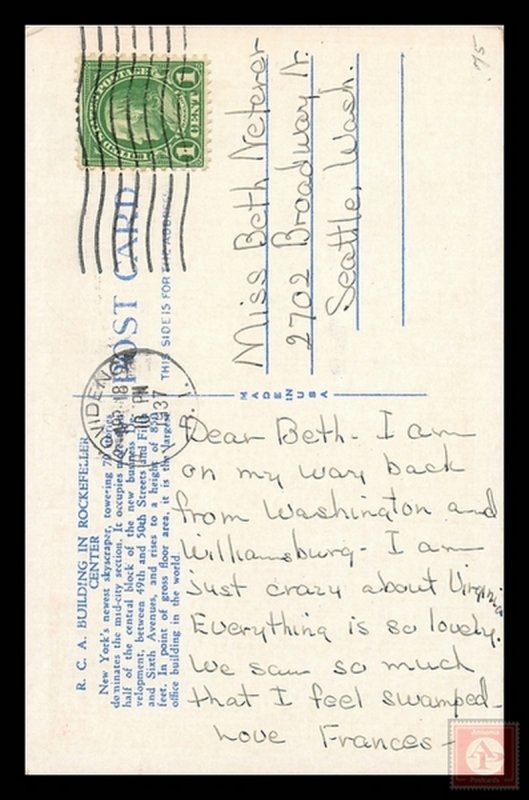 75
UNITED STATES POSTAGE
1 CENT 1
POST CARD
THIS SIDE IS FOR THE ADDRESS
Miss Beth Neterer
2702 Broadway N.
Seattle, Wash.
PROVIDENCE
R. I.
18
10 PM
1937
MADE IN USA
R. C. A. BUILDING IN ROCKEFELLER
CENTER
New York's newest skyscraper, towering 70 stories
dominates the mid-city section. It occupies
half of the central block of the new business
velopment, between 49th and 50th Streets and Fifth
and Sixth Avenues, and rises to a height of 850
feet. In point of gross floor area, it is the largest
office building in the world.
Dear Beth - I am
on my way back
from Washington and
Williamsburg - I am
just crazy about Virginia
Everything is so lovely.
We saw so much
that I feel swamped -
Love Frances -
AP
Postcards